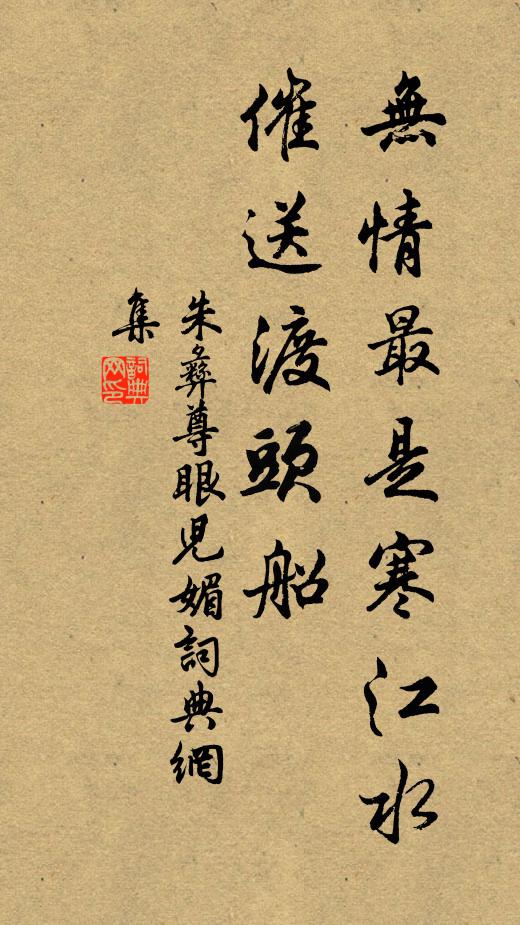 無情最是寒江水
催送渡頭船
朱彞尊眼兒媚詞典網
集
詞典
网印